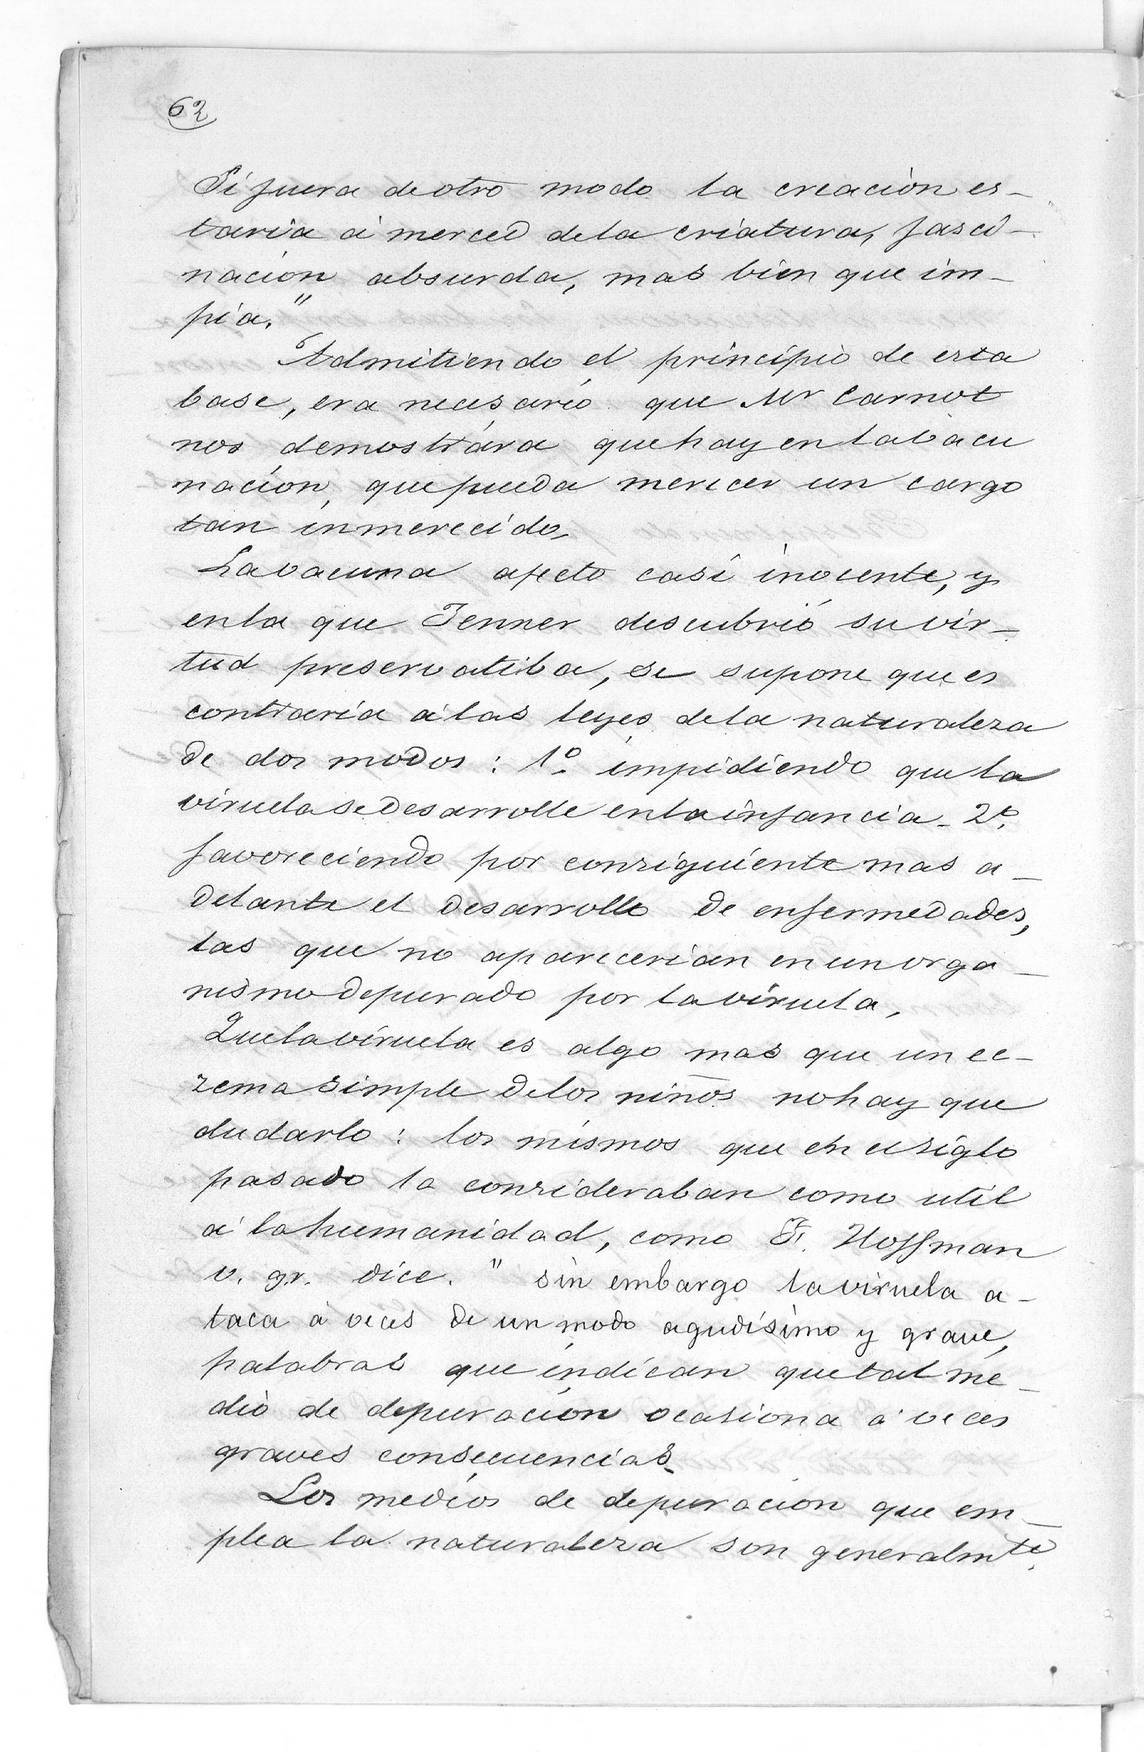 62
Si fuera de otro modo la creación es-
taría á merced de la criatura, fasci-
nación absurda, mas bien que im-
pía."
"Admitiendo el principio de esta
base, era necesario que Mr Carnot
nos demostrára que hay en la vacu
nación, que pueda merecer un cargo
tan inmerecido.
La vacuna afecto casi inocente, y
en la que Jenner descubrió su vir-
tud preservatiba, se supone que es
contraria á las leyes de la naturaleza
de dos modos: 1º impidiendo que la
viruela se desarrolle en la infancia - 2º
favoreciendo por consiguiente mas a-
delante el desarrollo de enfermedades,
las que no aparecerian en un orga-
nismo depurado por la viruela.
Que la viruela es algo mas que un ec-
zema simple de los niños no hay que
dudarlo: los mismos que en el siglo
pasado la consideraban como util
á la humanidad, como F. Hoffman
v. gr. dice. " sin embargo la viruela a-
taca á veces de un modo agudísimo y grave,
palabras que indican que tal me-
dio de depuración ocasiona á veces
graves consecuencias.
Los medios de depuracion que em-
plea la naturaleza son generalmte.